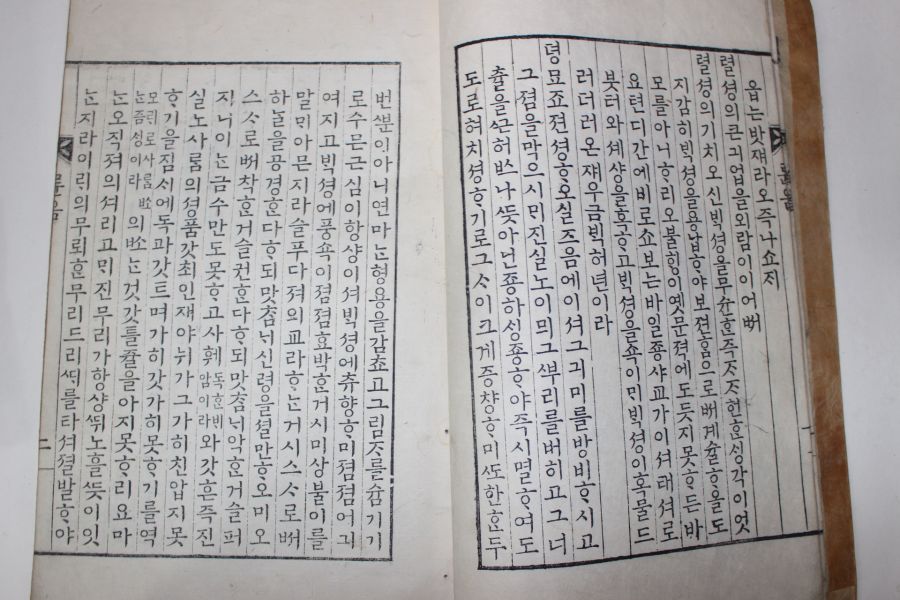 읍는 밧쟤라 오즉 나 쇼지
렬셩의 큰 긔업을 외람이 이어 뻐
렬셩의 기치오신 빅셩을 무슌ᄒᆞᆫ즉 ᄌᆞᄌᆞ현ᄒᆞᆫ 셩각이 엇
지 감히 빅셩을 용납ᄒᆞ야 보젼ᄒᆞᆷ으로 뻐 계슐ᄒᆞ올 도
모를 아니ᄒᆞ리오 불ᄒᆡᆼ이 옛 문젹에도 듯지 못ᄒᆞ든 바
요 텬디간에 비로쇼 보는 바 일죵 샤교가 이셔 래셔로
붓터 와 셰샹을 혹ᄒᆞ고 빅셩을 쇽이민 빅셩이 혹 물드
러 더러온 쟤 우금 빅 허년이라
뎡묘죠 젼셩ᄒᆞ오실 즈음에 이셔 그 긔미를 방비ᄒᆞ시고
그 졈을 막으시민 진실노 이믜 그 ᄲᅮ리를 버히고 그 너
츌을 근허 ᄡᅳ나 ᄯᅳᆺ아닌 죵하셩죵ᄒᆞ야 즉시 멸ᄒᆞ여도
도로혀 치셩ᄒᆞ기로 그 ᄉᆞ이 크게 증챵ᄒᆞ미 ᄯᅩ한 ᄒᆞᆫ두
번ᄲᅮᆫ이 아니연마는 형용을 감쵸고 그림ᄌᆞ를 슘기기
로 수믄 근심이 항샹 이셔 빅셩에 츄향ᄒᆞ미 졈졈 어긔
여지고 빅셩에 풍쇽이 졈졈 효박ᄒᆞᆫ 거시 미샹불 이를
말미아믄지라 슬푸다 져의 교라 ᄒᆞᄂᆞᆫ 거시 스ᄉᆞ로 뻐
하ᄂᆞᆯ을 공경ᄒᆞᆫ다 ᄒᆞ되 맛ᄎᆞᆷᄂᆡ 신령을 셜만ᄒᆞ오미오
스ᄉᆞ로 뻐 착ᄒᆞᆫ 거슬 권ᄒᆞᆫ다 ᄒᆞ되 맛ᄎᆞᆷᄂᆡ 악ᄒᆞᆫ 거슬 퍼
지니 이ᄂᆞᆫ 금수만도 못ᄒᆞ고 사훼 독ᄒᆞᆫ ᄇᆡ암이라 와 갓흔즉 진
실노 사ᄅᆞᆷ의 셩품 갓최인 쟤야 뉘가 그 가히 친압지 못
ᄒᆞ기을 짐시에 독과 갓트며 가히 갓가히 못ᄒᆞ기를 역
의 ᄡᅳᄂᆞᆫ 것 갓틀 쥴을 아지 못ᄒᆞ리요마
ᄂᆞᆫ 오직 져의 셔리고 ᄆᆡ진 무리가 항샹 ᄯᅱ노흘 ᄯᅳᆺ이 잇
ᄂᆞᆫ지라 이리의 무뢰ᄒᆞᆫ 무리드리 ᄯᆡ를 타셔 졀발ᄒᆞ야
륜음
二